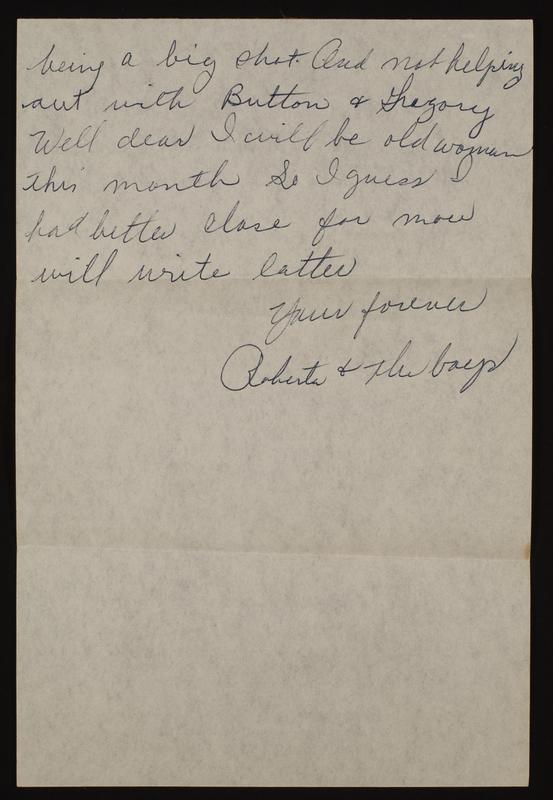 being a big shot. And not helping
out with Button & Gregory
Well dear I will be old woman
this month So I guess I
had better close for now
will write latter
Your forever
Roberta & the boys